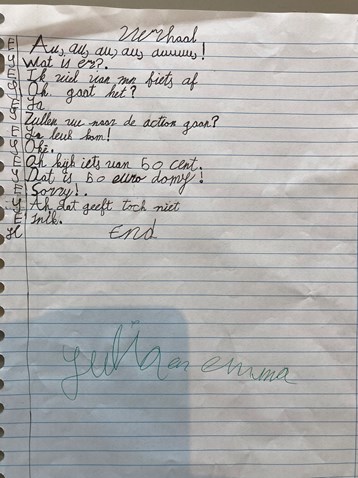 Verhaal
E Au, au, au, au, auuuu!
Y Wat is er?.
E Ik viel van mn fiets af
Y Oh, gaat het?
E Ja
Y Zullen we naar de action gaan?
E Ja leuk kom!
Y Oké.
E Oh kijk iets van 50 cent.
Y Dat is 50 euro domy!
E Sorry!.
Y Ah dat geeft toch niet
E
End
Yulia en emma